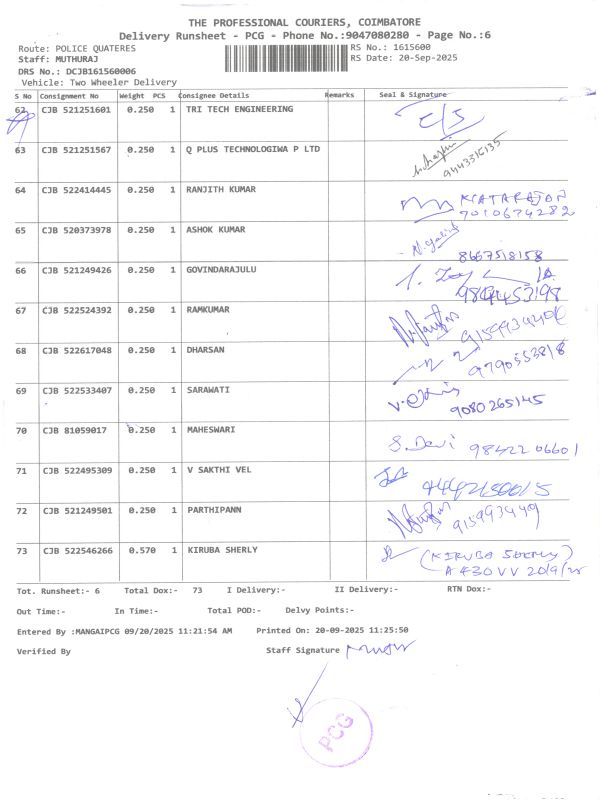 THE PROFESSIONAL COURIERS, COIMBATORE
Delivery Runsheet - PCG - Phone No.:9047080280 - Page No.:6
Route: POLICE QUATERES RS No.: 1615600
Staff: MUTHURAJ RS Date: 20-Sep-2025
DRS No.: DCJB161560006
Vehicle: Two Wheeler Delivery
S No Consignment No Weight PCS Consignee Details Remarks Seal & Signature
62 CJB 521251601 0.250 1 TRI TECH ENGINEERING
63 CJB 521251567 0.250 1 Q PLUS TECHNOLOGIWA P LTD
64 CJB 522414445 0.250 1 RANJITH KUMAR NATARAJAN
7010674282
65 CJB 520373978 0.250 1 ASHOK KUMAR
8667518158
66 CJB 521249426 0.250 1 GOVINDARAJULU
9894453198
67 CJB 522524392 0.250 1 RAMKUMAR
68 CJB 522617048 0.250 1 DHARSAN 9790553818
69 CJB 522533407 0.250 1 SARAWATI
9080265145
70 CJB 81059017 0.250 1 MAHESWARI S. Devi 98422 06601
71 CJB 522495309 0.250 1 V SAKTHI VEL
72 CJB 521249501 0.250 1 PARTHIPANN
73 CJB 522546266 0.570 1 KIRUBA SHERLY (KIRUBA SHERLY)
A430VV 20/9/25
Tot. Runsheet:- 6 Total Dox:- 73 I Delivery:- II Delivery:- RTN Dox:-
Out Time:- In Time:- Total POD:- Delvy Points:-
Entered By :MANGAIPCG 09/20/2025 11:21:54 AM Printed On: 20-09-2025 11:25:50
Verified By Staff Signature
PCG